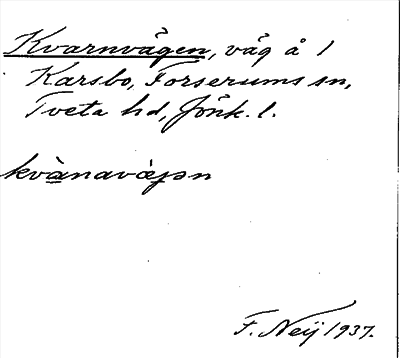 Kvarnvägen, väg å 1
Karsbo, Forserums sn,
Tveta hd, Jönk. l.
kvànavæ̀ɟən
F. Neij 1937.